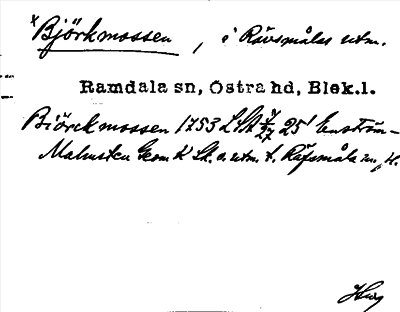 x Björkmossen, i Rävsmålas utm.
Ramdala sn, Östra hd, Blek.l.
Biörckmossen 1753 LStA 25¹ Enström-
Malmsten Geom K Sk. o. utm. t. Räfsmåla m.